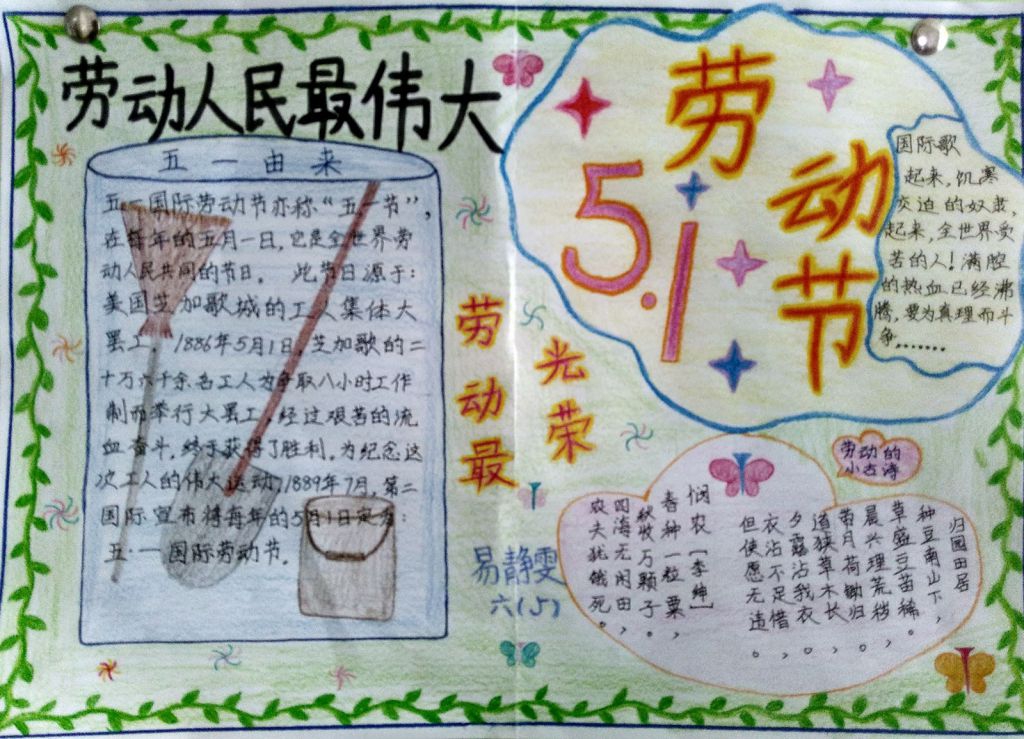 劳动人民最伟大
五一由来
五一国际劳动节亦称“五一节”，
在每年的五月一日，它是全世界劳
动人民共同的节日。 此节日源于：
美国芝加歌城的工人集体大
罢工，1886年5月1日，芝加歌的二
十万六千余名工人为争取八小时工作
制而举行大罢工，经过艰苦的流
血奋斗，终于获得了胜利，为纪念这
次工人的伟大运动，1889年7月，第二
国际宣布将每年的5月1日定为：
五·一国际劳动节。
劳动最
光荣
易静雯
六(5)
劳动节
5.1
国际歌
起来，饥寒
交迫的奴隶，
起来，全世界受
苦的人！满腔
的热血已经沸
腾，要为真理而斗
争.......
劳动的
小古诗
归园田居
种豆南山下，
草盛豆苗稀。
晨兴理荒秽，
带月荷锄归。
道狭草木长，
夕露沾我衣。
衣沾不足惜，
但使愿无违。
悯农［李绅］
春种一粒粟，
秋收万颗子。
四海无闲田，
农夫犹饿死。